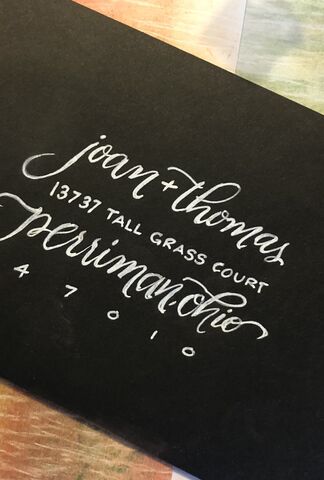 joan + thomas
13737 TALL GRASS COURT
perriman, ohio
47010